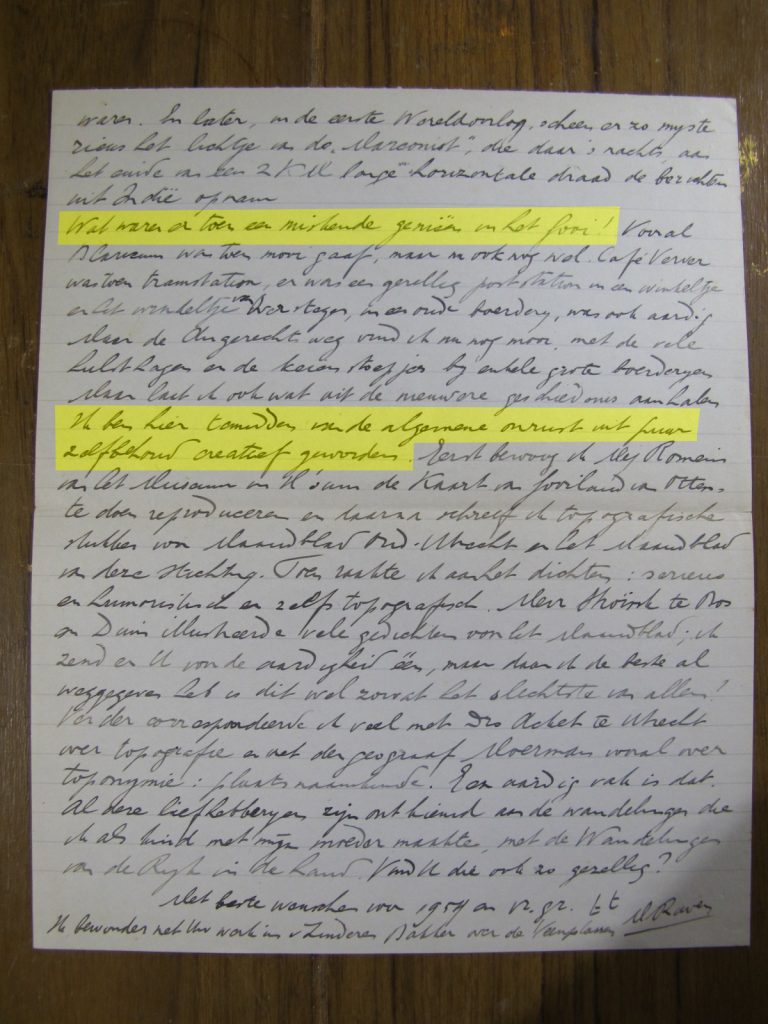 waren. En later, in de eerste Wereldoorlog, scheen er zo myste
rieus het lichtje van de "Marconist", die daar 's nachts aan
het einde van een 2 KM lange horizontale draad de berichten
uit Indië opnam
Wat waren er toen een miskende genieën in het Gooi! Vooral
Blaricum was toen mooi gaaf, maar nu ook nog wel. Café Verver
was toen tramstation, er was een gezellig poststation in een winkeltje
en het winkeltje van Versteger, in een oude boerderij, was ook aardig
Maar de Angerechtsweg vind ik nu nog mooi, met de vele
hulsthagen en de keien stoepjes bij enkele grote boerderijen
Maar laat ik ook wat uit de nieuwere geschiedenis aanhalen
Ik ben hier temidden van de algemene onrust uit puur
zelfbehoud creatief geworden. Eerst bewoog ik Mej Romein
van het Museum in H'sum de Kaart van Gooiland van Otten
te doen reproduceren en daarna schreef ik topografische
stukken voor Maandblad Oud-Utrecht en het Maandblad
van deze stichting. Toen raakte ik aan het dichten: serieus
en humoristisch en zelfs topografisch. Mevr te Bos
en Duin illustreerde vele gedichten voor het Maandblad; ik
zend er U voor de aardigheid één, maar daar ik de beste al
weggegeven heb is dit wel zowat het slechtste van allen!
Verder correspondeerde ik veel met Drs Acket te Utrecht
over topografie en met den geograaf Moerman vooral over
toponymie: plaatsnaamkunde. Een aardig vak is dat.
Al deze liefhebberyen zijn ontkiemd aan de wandelingen die
ik als kind met mijn moeder maakte, met de Wandelingen
van de Rijk in de hand. Vond U die ook zo gezellig?
Met beste wensen voor 1954 en vr. gr. t t
Ik bewonder net Uw werk in v Linderen Bakker over de Veenplassen M Raven